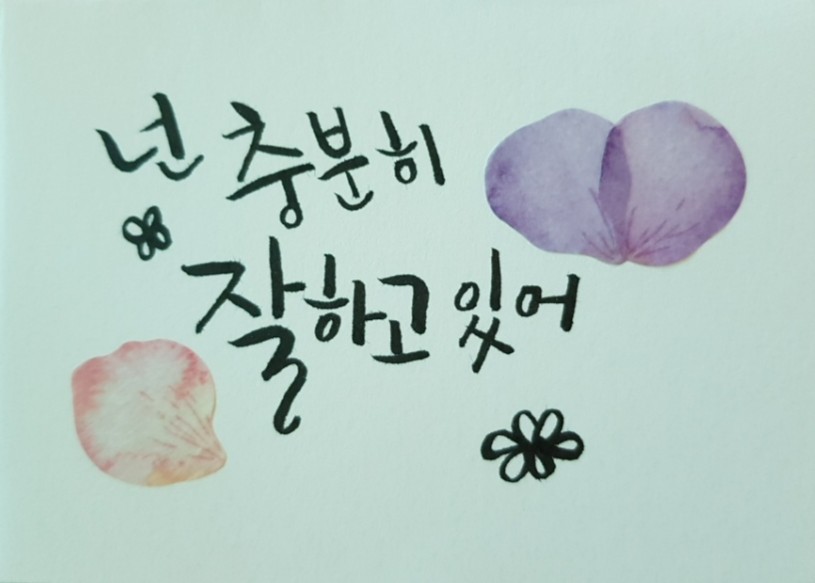 넌 충분히
잘하고 있어